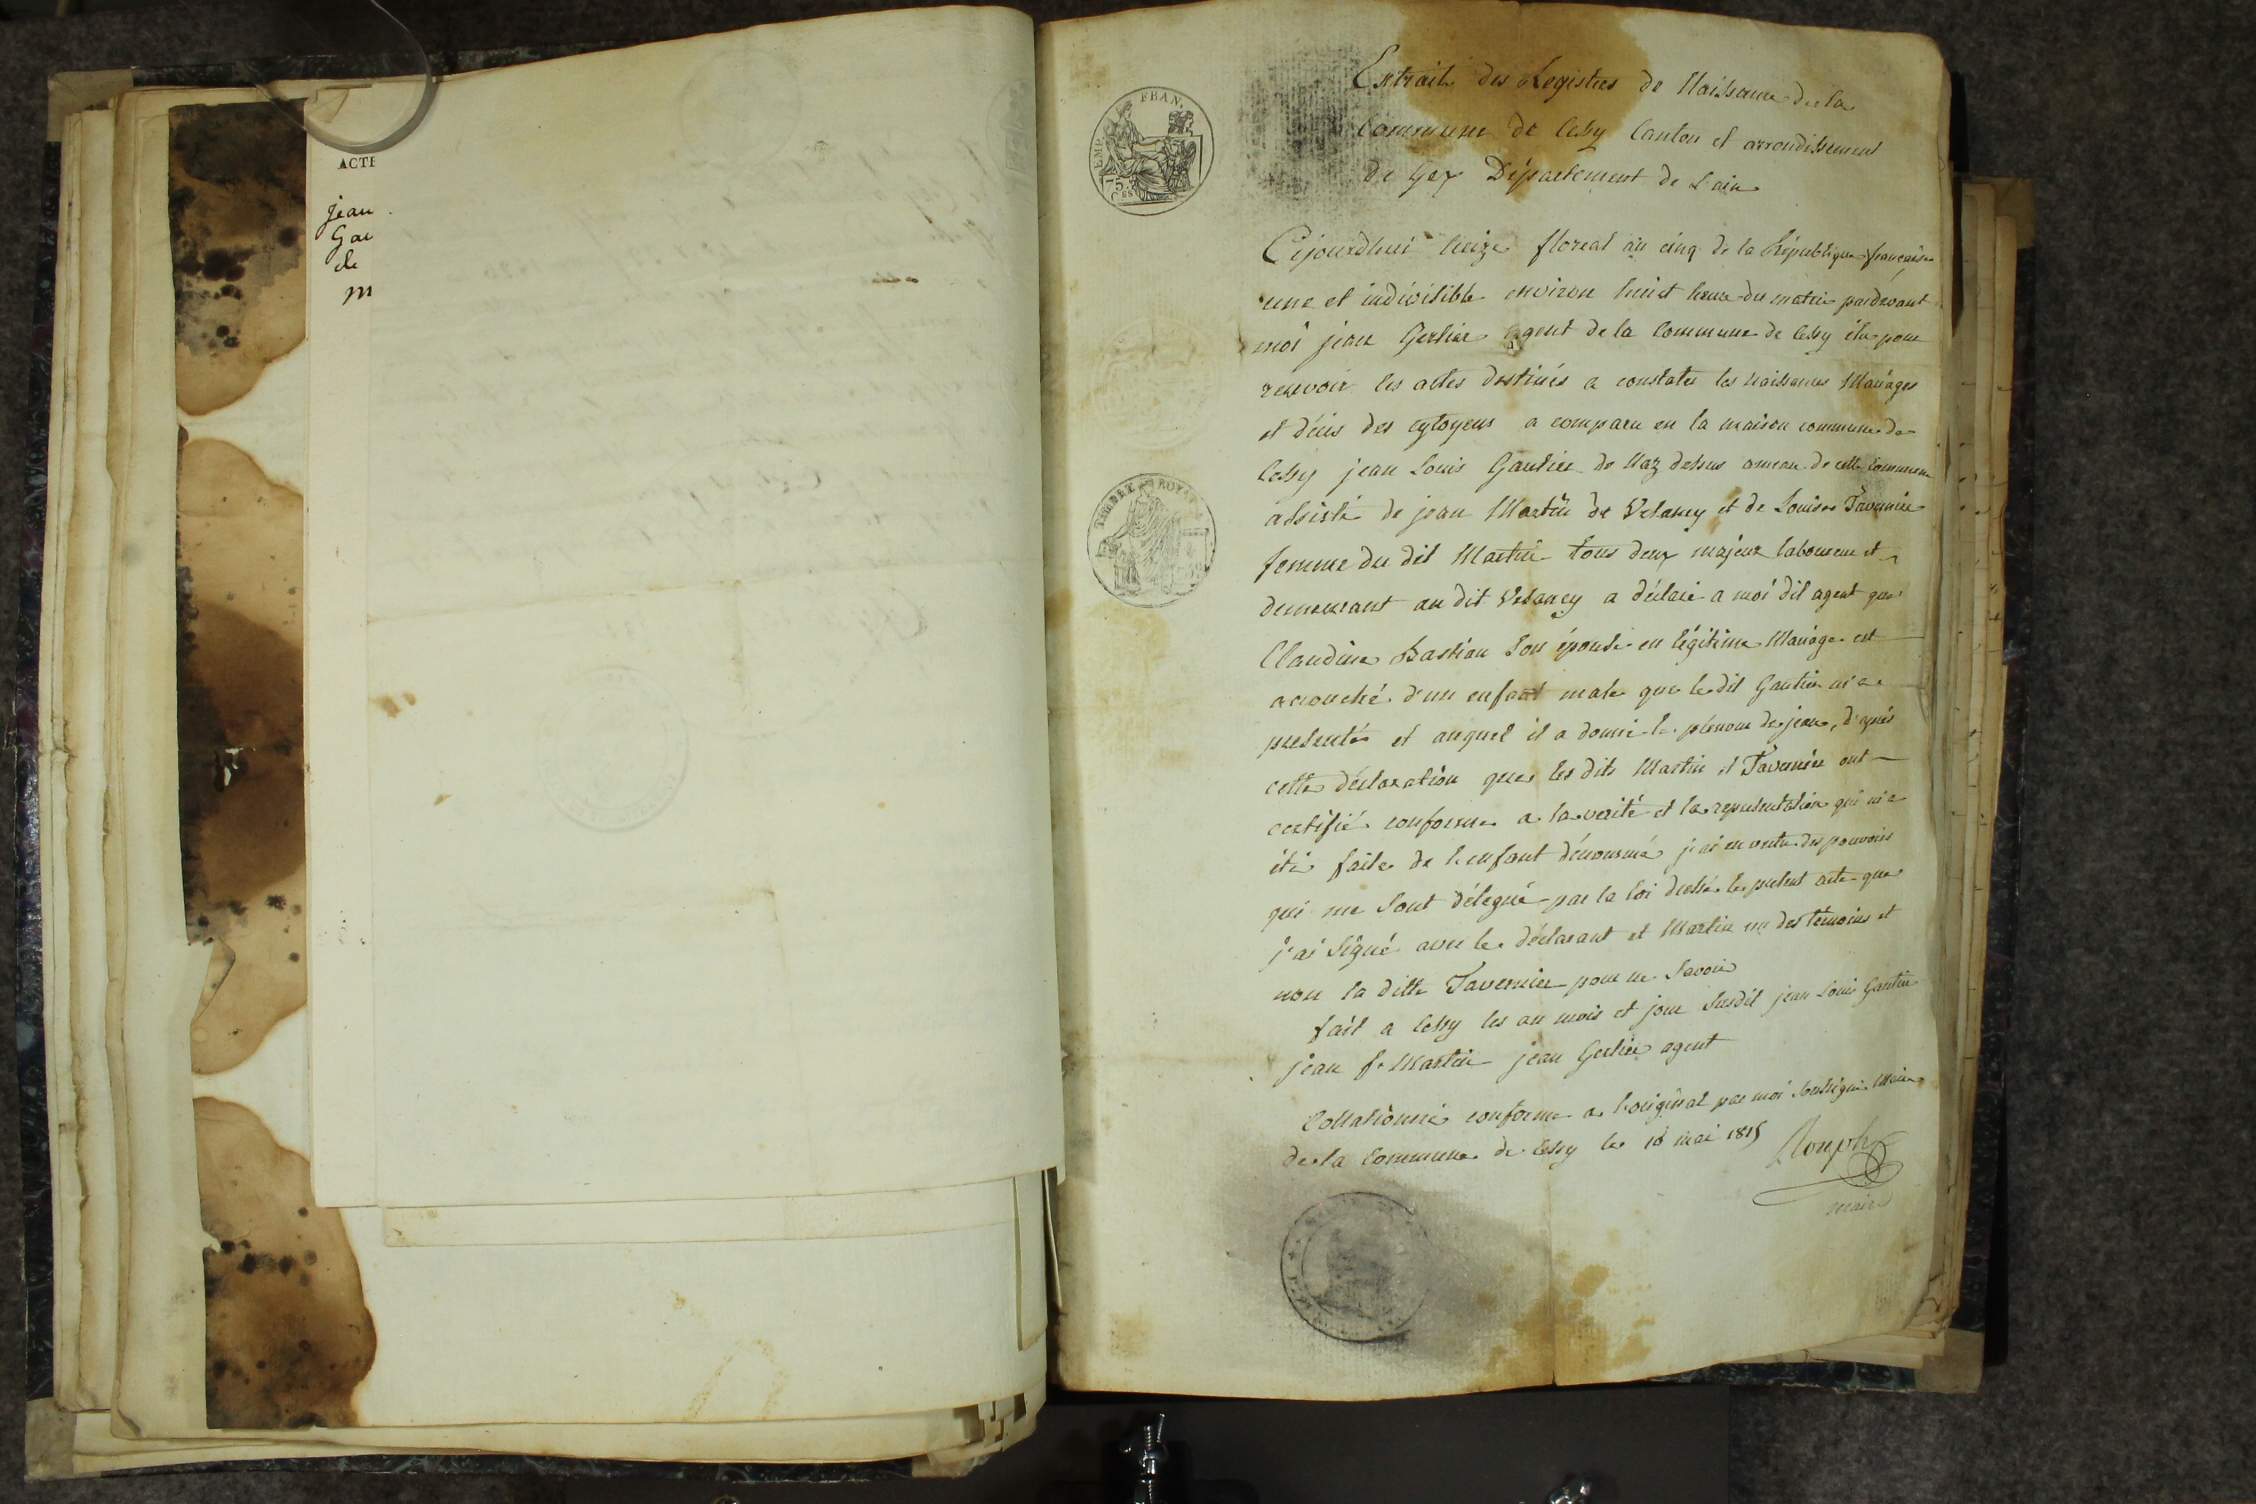 ACTE
jean
Gau
de
m
EMP. FRAN.
75.
Ces
TIMBRE ROYAL
Extrait des Registres de Naissance de la
Commune de Cessy Canton et arrondissement
de Gex Département de Lain
Cejourdhui treize floreal an cinq de la République française
une et indivisible environ huit heure du matin pardevant
moi jean Gerlier agent de la Commune de Cessy élu pour
recevoir les actes destinés a constater les naissances Mariages
et décès des cytoyens a comparu en la maison commune de
Cessy jean Louis Gautier de Naz dessus ameau de cette Commune
assisté de jean Martin de Vesancy et de Louise Tavernier
femme du dit Martin tous deux majeur laboureur et
demeurant au dit Vesancy a déclaré a moi dit agent que
Claudine Bastian son épouse en légitime Mariage est
accouché d'un enfant male que le dit Gautier m'a
presentés et auquel il a donné le prénom de jean, d'après
cette déclaration que les dits Martin et Tavernier ont
certifié conforme a la verité et la representation qui m'a
été faite de l'enfant dénommé j'ai en vertu des pouvoirs
qui me sont délégué par la loi dressé le present acte que
j'ai Signé avec le déclarant et Martin un des témoins et
non la ditte Tavernier pour ne Savoir
fait a Cessy les an mois et jour Susdit jean Louis Gautier
jean f. Martin jean Gerlier agent
Collationné conforme a l'original par moi Soussigné Maire
de la Commune de Cessy le 16 mai 1815
maire